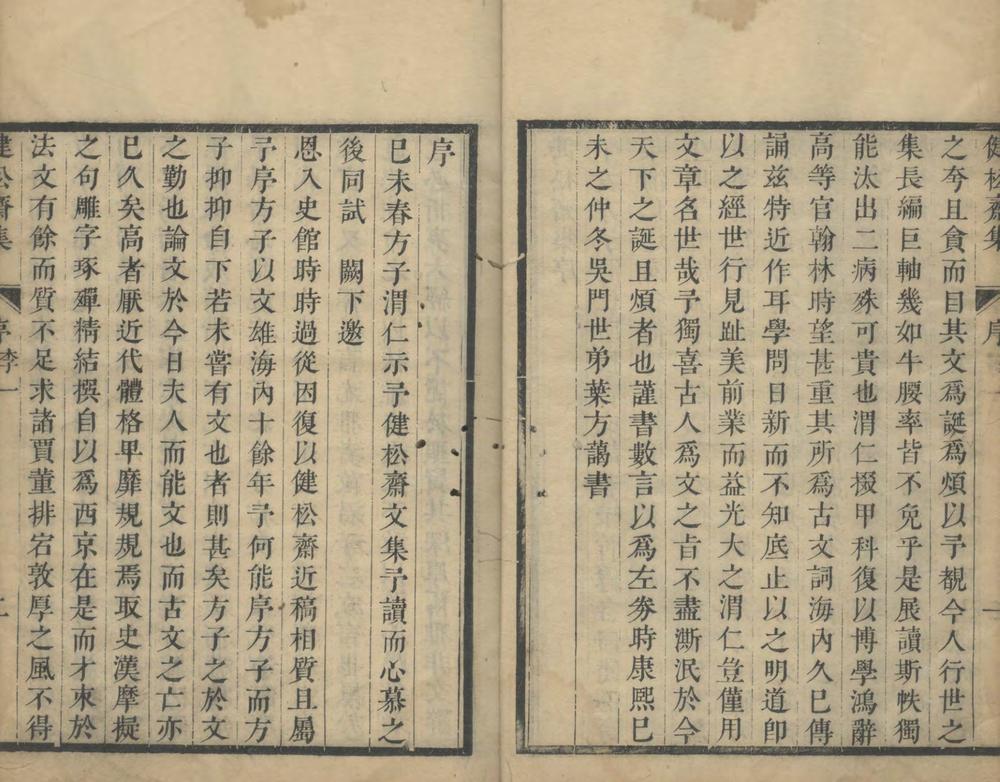 健松齋集 序 一
之夸且貪而目其文爲誕爲煩以予覩今人行世之
集長編巨軸幾如牛腰率皆不免乎是展讀斯帙獨
能汰出二病殊可貴也渭仁掇甲科復以博學鴻辭
高等官翰林時望甚重其所爲古文詞海內久巳傳
誦兹特近作耳學問日新而不知底止以之明道卽
以之經世行見趾美前業而益光大之渭仁豈僅用
文章名世哉予獨喜古人爲文之旨不盡澌泯於今
天下之誕且煩者也謹書數言以爲左劵時康熙巳
未之仲冬吳門世弟葉方藹書
序
巳未春方子渭仁示予健松齋文集予讀而心慕之
後同試 闕下邀
恩入史館時時過從因復以健松齋近稿相質且屬
予序方子以文雄海內十餘年予何能序方子而方
子抑抑自下若未嘗有文也者則甚矣方子之於文
之勤也論文於今日夫人而能文也而古文之亡亦
巳久矣高者厭近代體格卑靡規規焉取史漢摩擬
之句雕字琢殫精結撰自以爲西京在是而才束於
法文有餘而質不足求諸賈董排宕敦厚之風不得
健松齋集 序李一 二